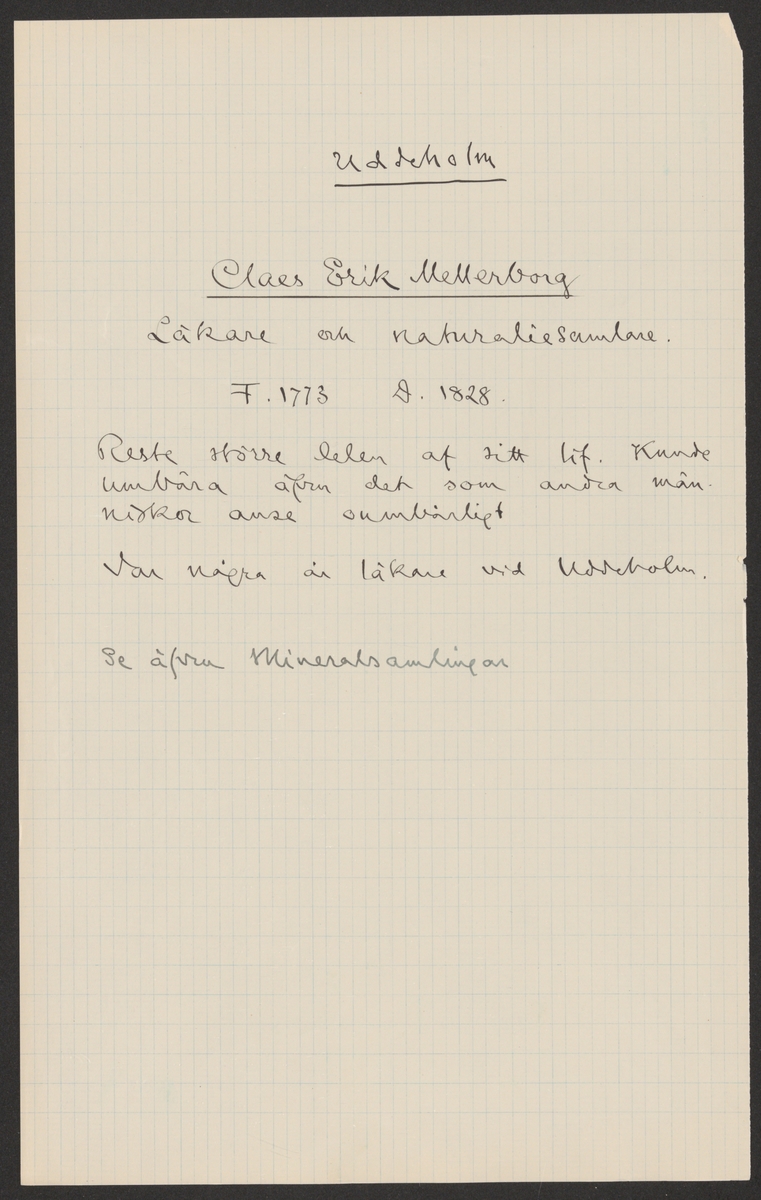 Uddeholm
Claes Erik Mellerborg
Läkare och naturaliesamlare.
F. 1773 D. 1828.
Reste större delen af sitt lif. Kunde
umbära äfven det som andra män-
niskor anse oumbärligt
Var några år läkare vid Uddeholm.
Se äfven Mineralsamlingar